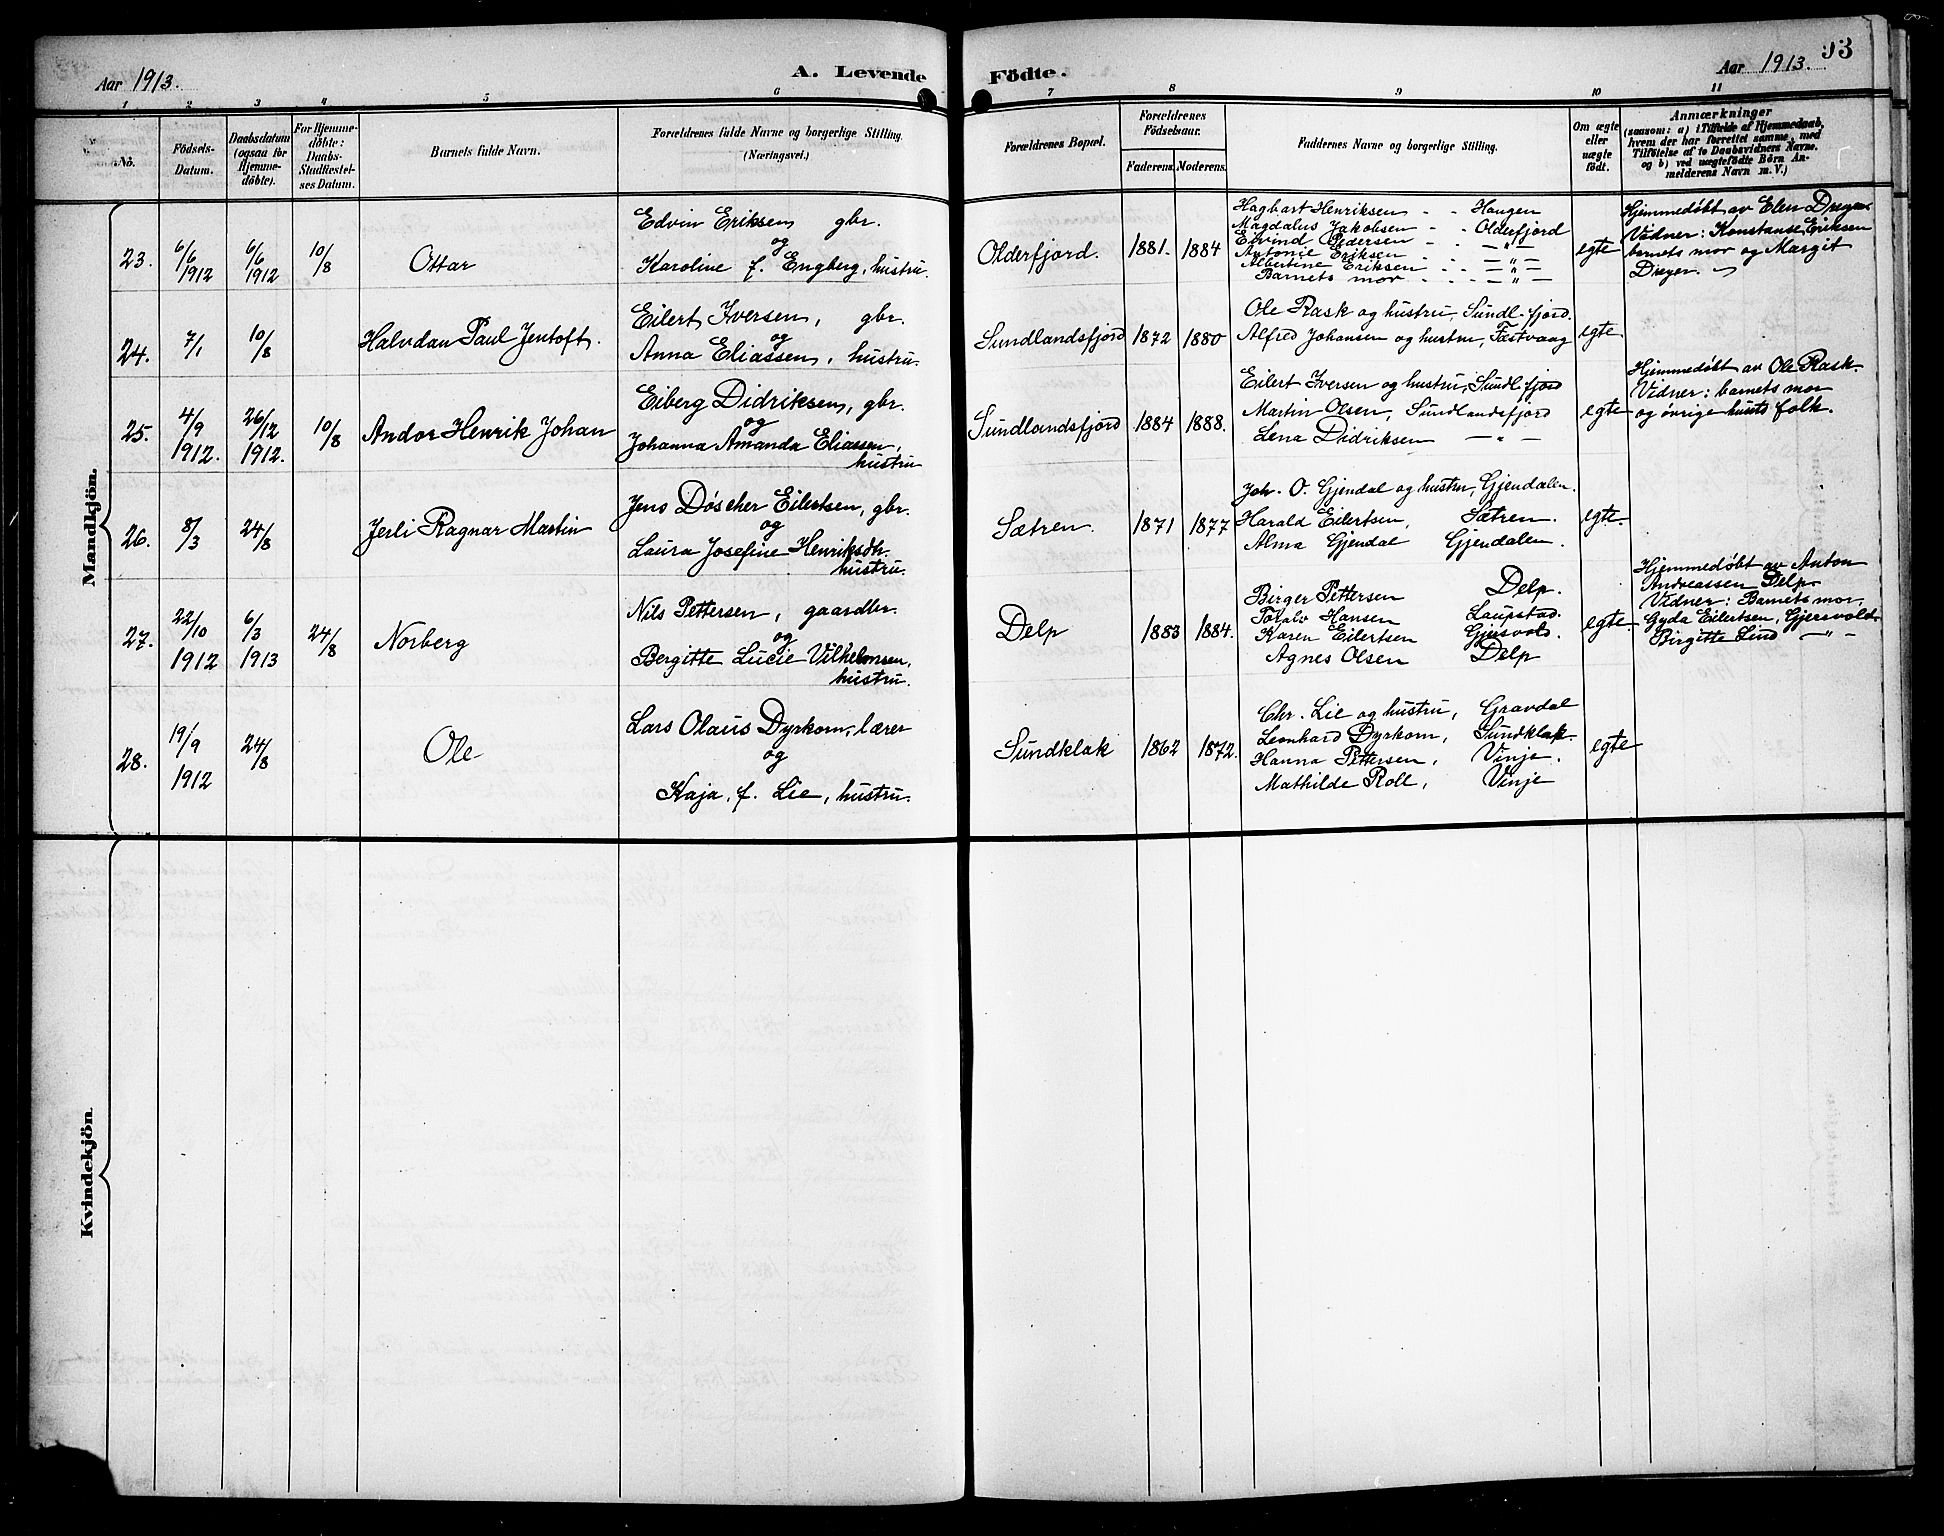 93
Aar 1913.
A. Levende Födte.
Aar 1913.
1 2 3 4 5 6 7 8 9 10 11
No.
Födsels-
Datum.
Daabsdatum
(ogsaa for
Hjemme-
döbte).
For Hjemme-
döbte:
Daabs-
Stadfæstel-
ses Datum.
Barnets fulde Navn.
Forældrenes fulde Navne og borgerlige Stilling.
(Næringsvei.)
Forældrenes Bopæl.
Forældrenes
Födselsaar.
Faderens. Moderens.
Faddernes Navne og borgerlige Stilling.
Om ægte
eller
uægte
födt.
Anmærkninger
(saasom: a) i Tilfælde af Hjemmedaab,
hvem der har forrettet samme, med
Tilföielse af to Daabsvidners Navne,
og b) ved uægtefödte Börn An-
melderens Navn m. V.)
Mandkjön.
23.
6/6
1912
6/6
1912
10/8
Ottar
Edvin Eriksen gbr.
og
Karoline f. Engberg, hustru.
Olderfjord.
1881. 1884
Hagbart Henriksen - - Haugen
Magdalus Jakobsen - - Olderfjord
Eivind Pedersen - - — " —
Antonie Eriksen - - — " —
Albertine Eriksen - - — " —
Barnets mor - - - — " —
egte
Hjemmedøbt av Elen Dreyer
Vidner: Konstanse Eriksen
barnets mor og Margit
Dreyer.
24.
7/1
10/8
Halvdan Paul Jentoft.
Eilert Iversen, gbr.
og
Anna Eliassen, hustru.
Sundlandsfjord
1872 1880
Ole Rask og hustru, Sundl-fjord.
Alfred Johansen og hustru, Fastvaag
egte
25.
4/9
1912.
26/12
1912.
10/8
Andor Henrik Johan
Eiberg Didriksen, gbr.
og
Johanna Amanda Eliassen,
hustru
Sundlandsfjord
1884 1888.
Eilert Iversen og hustru, Sundl.fjord
Martin Olsen, Sundlandsfjord
Lena Didriksen — " —
egte
Hjemmedøbt av Ole Rask.
Vidner: barnets mor
og øvrige husts folk.
26.
8/3
24/8
Jerli Ragnar Martin
Jens Døscher Eilertsen, gbr.
og
Laura Josefine Henriksdtr.
hustru.
Sætren.
1871 1877
Joh. O. Gjendal og hustru, Gjendalen.
Harald Eilertsen, Sætren.
Alma Gjendal Gjendalen.
egte.
27.
22/10
1912
6/3
1913
24/8
Norberg
Nils Pettersen, gaardbr.
og
Bergitte Lucie Vilhelmsen,
hustru.
Delp
1883 1884.
Birger Pettersen Delp.
Toralv Hansen Laupstad.
Karen Eilertsen Gjersvold.
Agnes Olsen Delp
egte.
Hjemmedøbt av Anton
Andreassen Delp.
Vidner: Barnets mor,
Gyda Eilertsen, Gjersvold
Birgitte Lind — " —
28.
19/9
1912
24/8
Ole
Lars Olaus Dyrkorn, lærer
og
Kaja, f. Lie, hustru.
Sundklak
1862 1872.
Chr. Lie og hustru, Gravdal
Leonhard Dyrkorn, Sundklak.
Hanna Pettersen, Vinje.
Mathilde Roll, Vinje
egte
Kvindekjön.